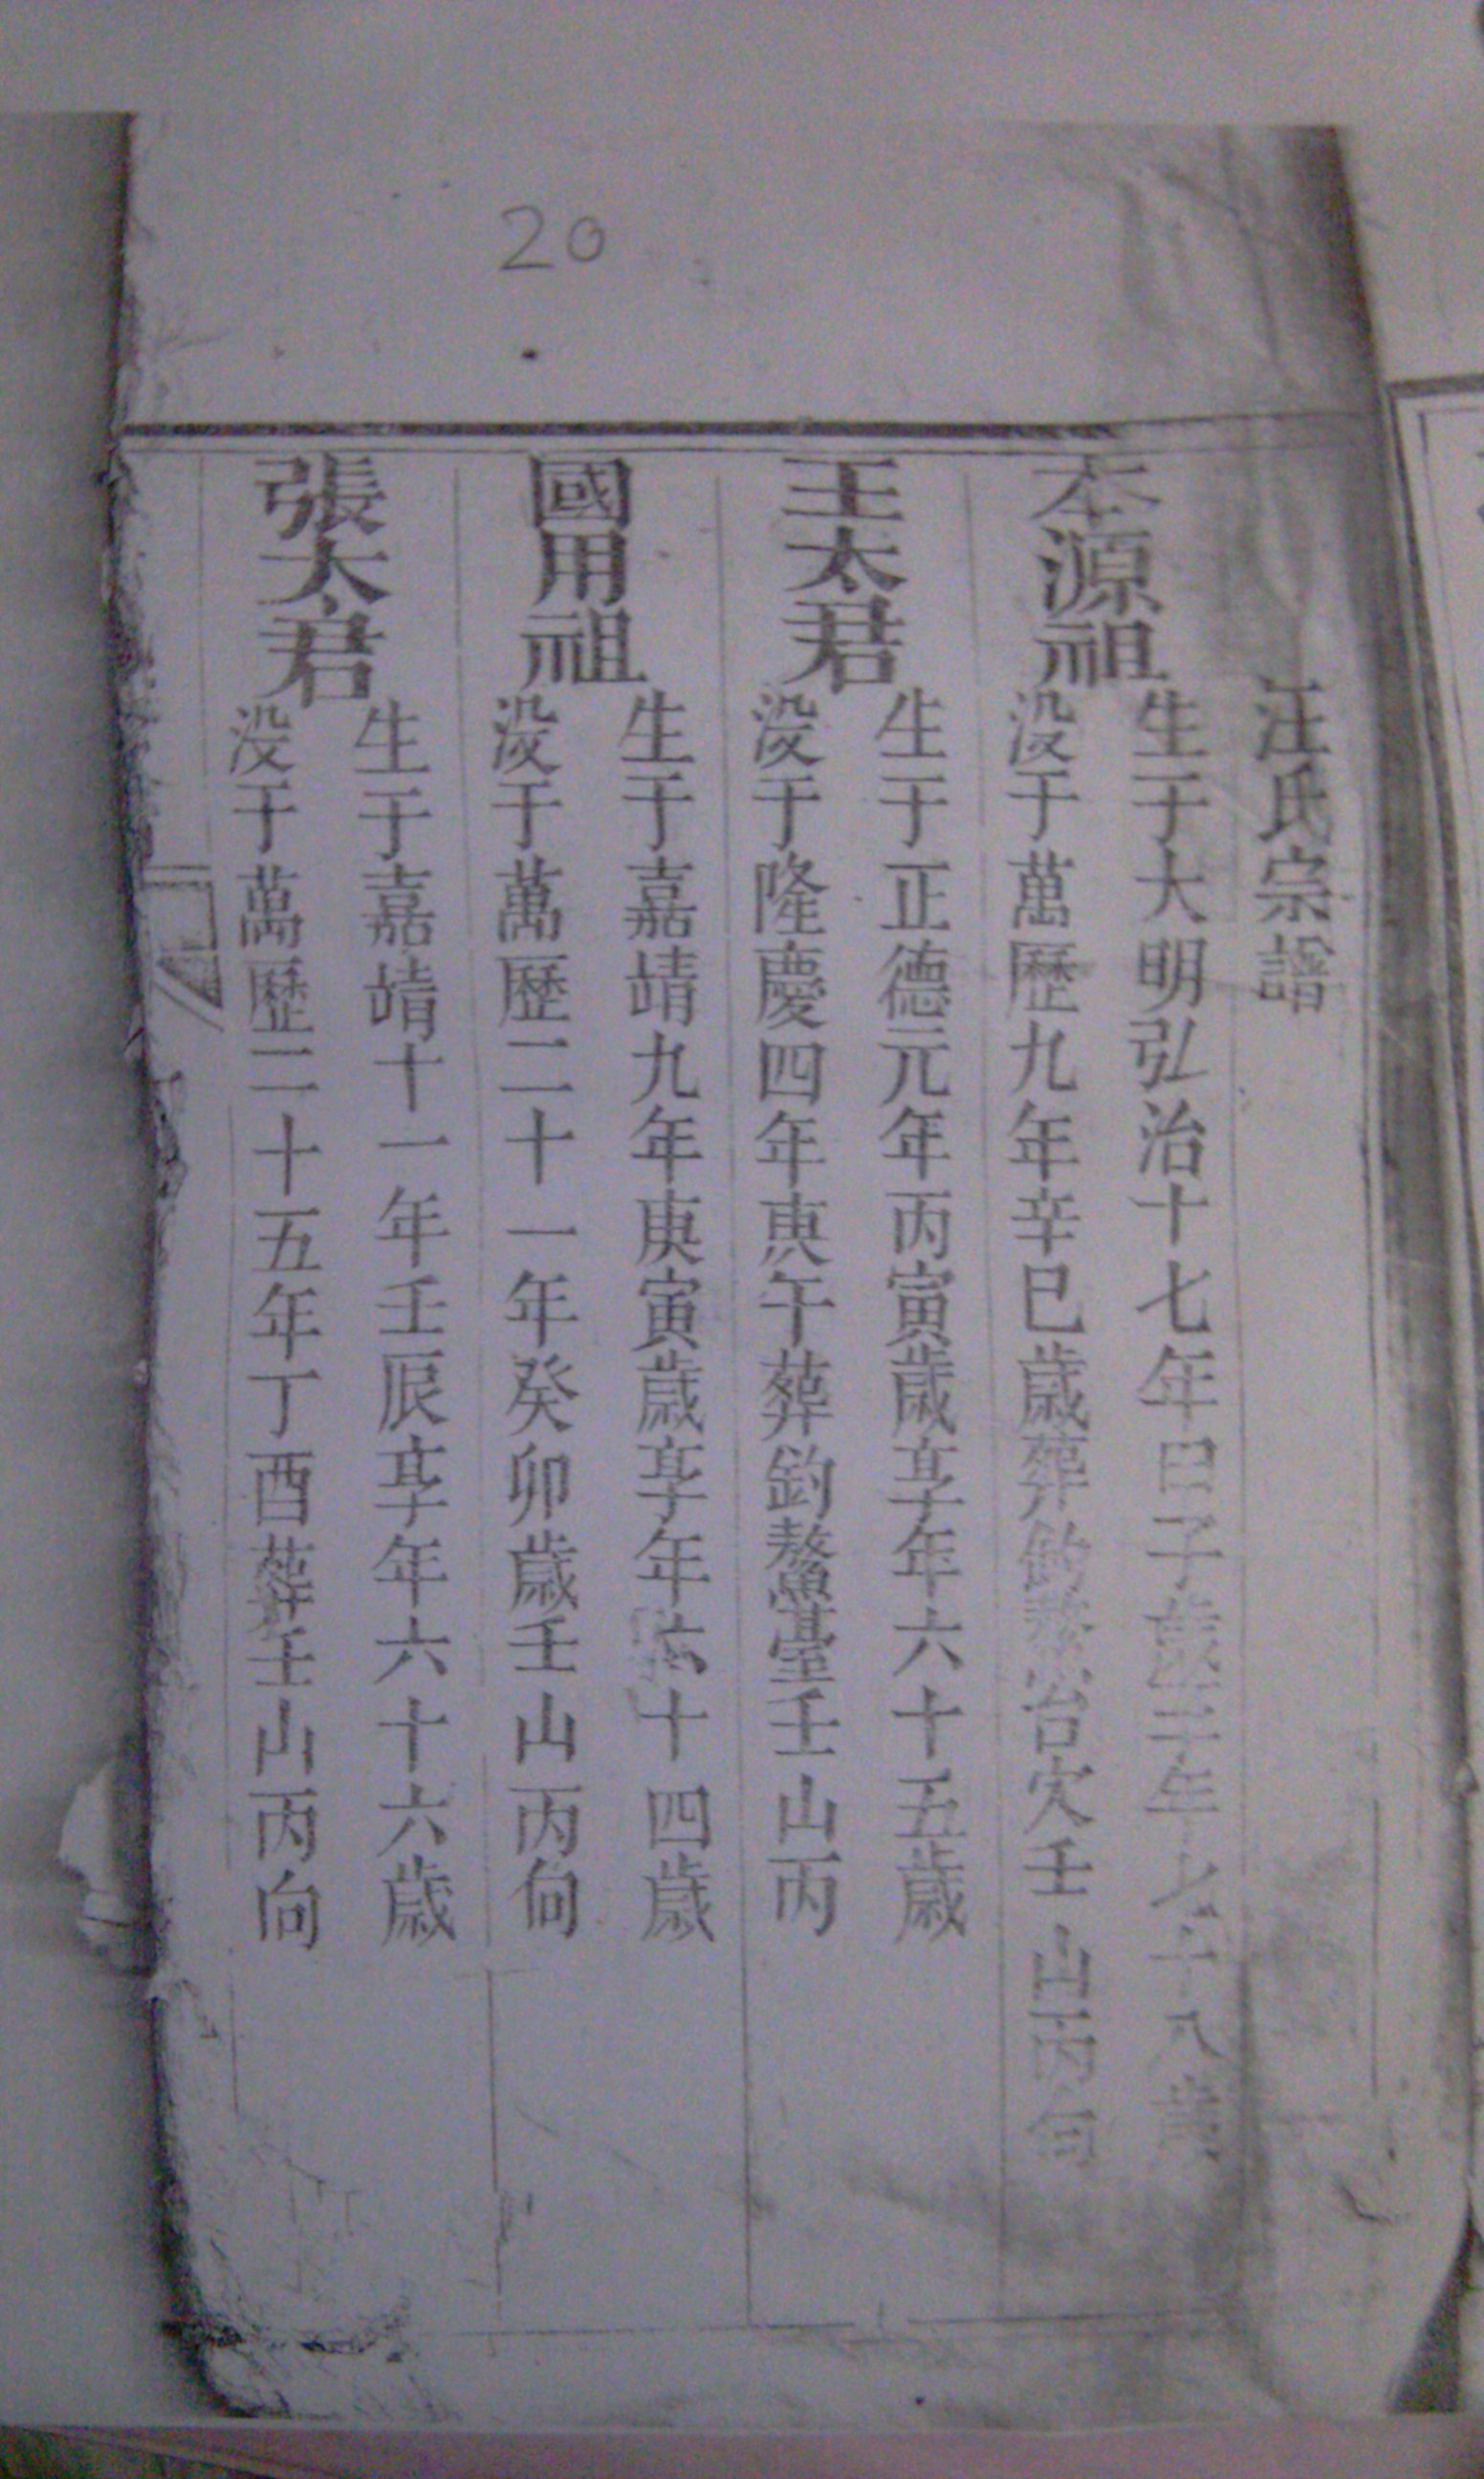 20
汪氏宗譜
本源祖
生于大明弘治十七年甲子歲 年七十八歲
没于萬歷九年辛巳歲葬釣 台穴壬山丙向
王太君
生于正德元年丙寅歲享年六十五歲
没于隆慶四年庚午葬釣鰲臺壬山丙
國用祖
生于嘉靖九年庚寅歲享年六十四歲
没于萬歷二十一年癸卯歲壬山丙向
張太君
生于嘉靖十一年壬辰享年六十六歲
没于萬歷二十五年丁酉葬壬山丙向